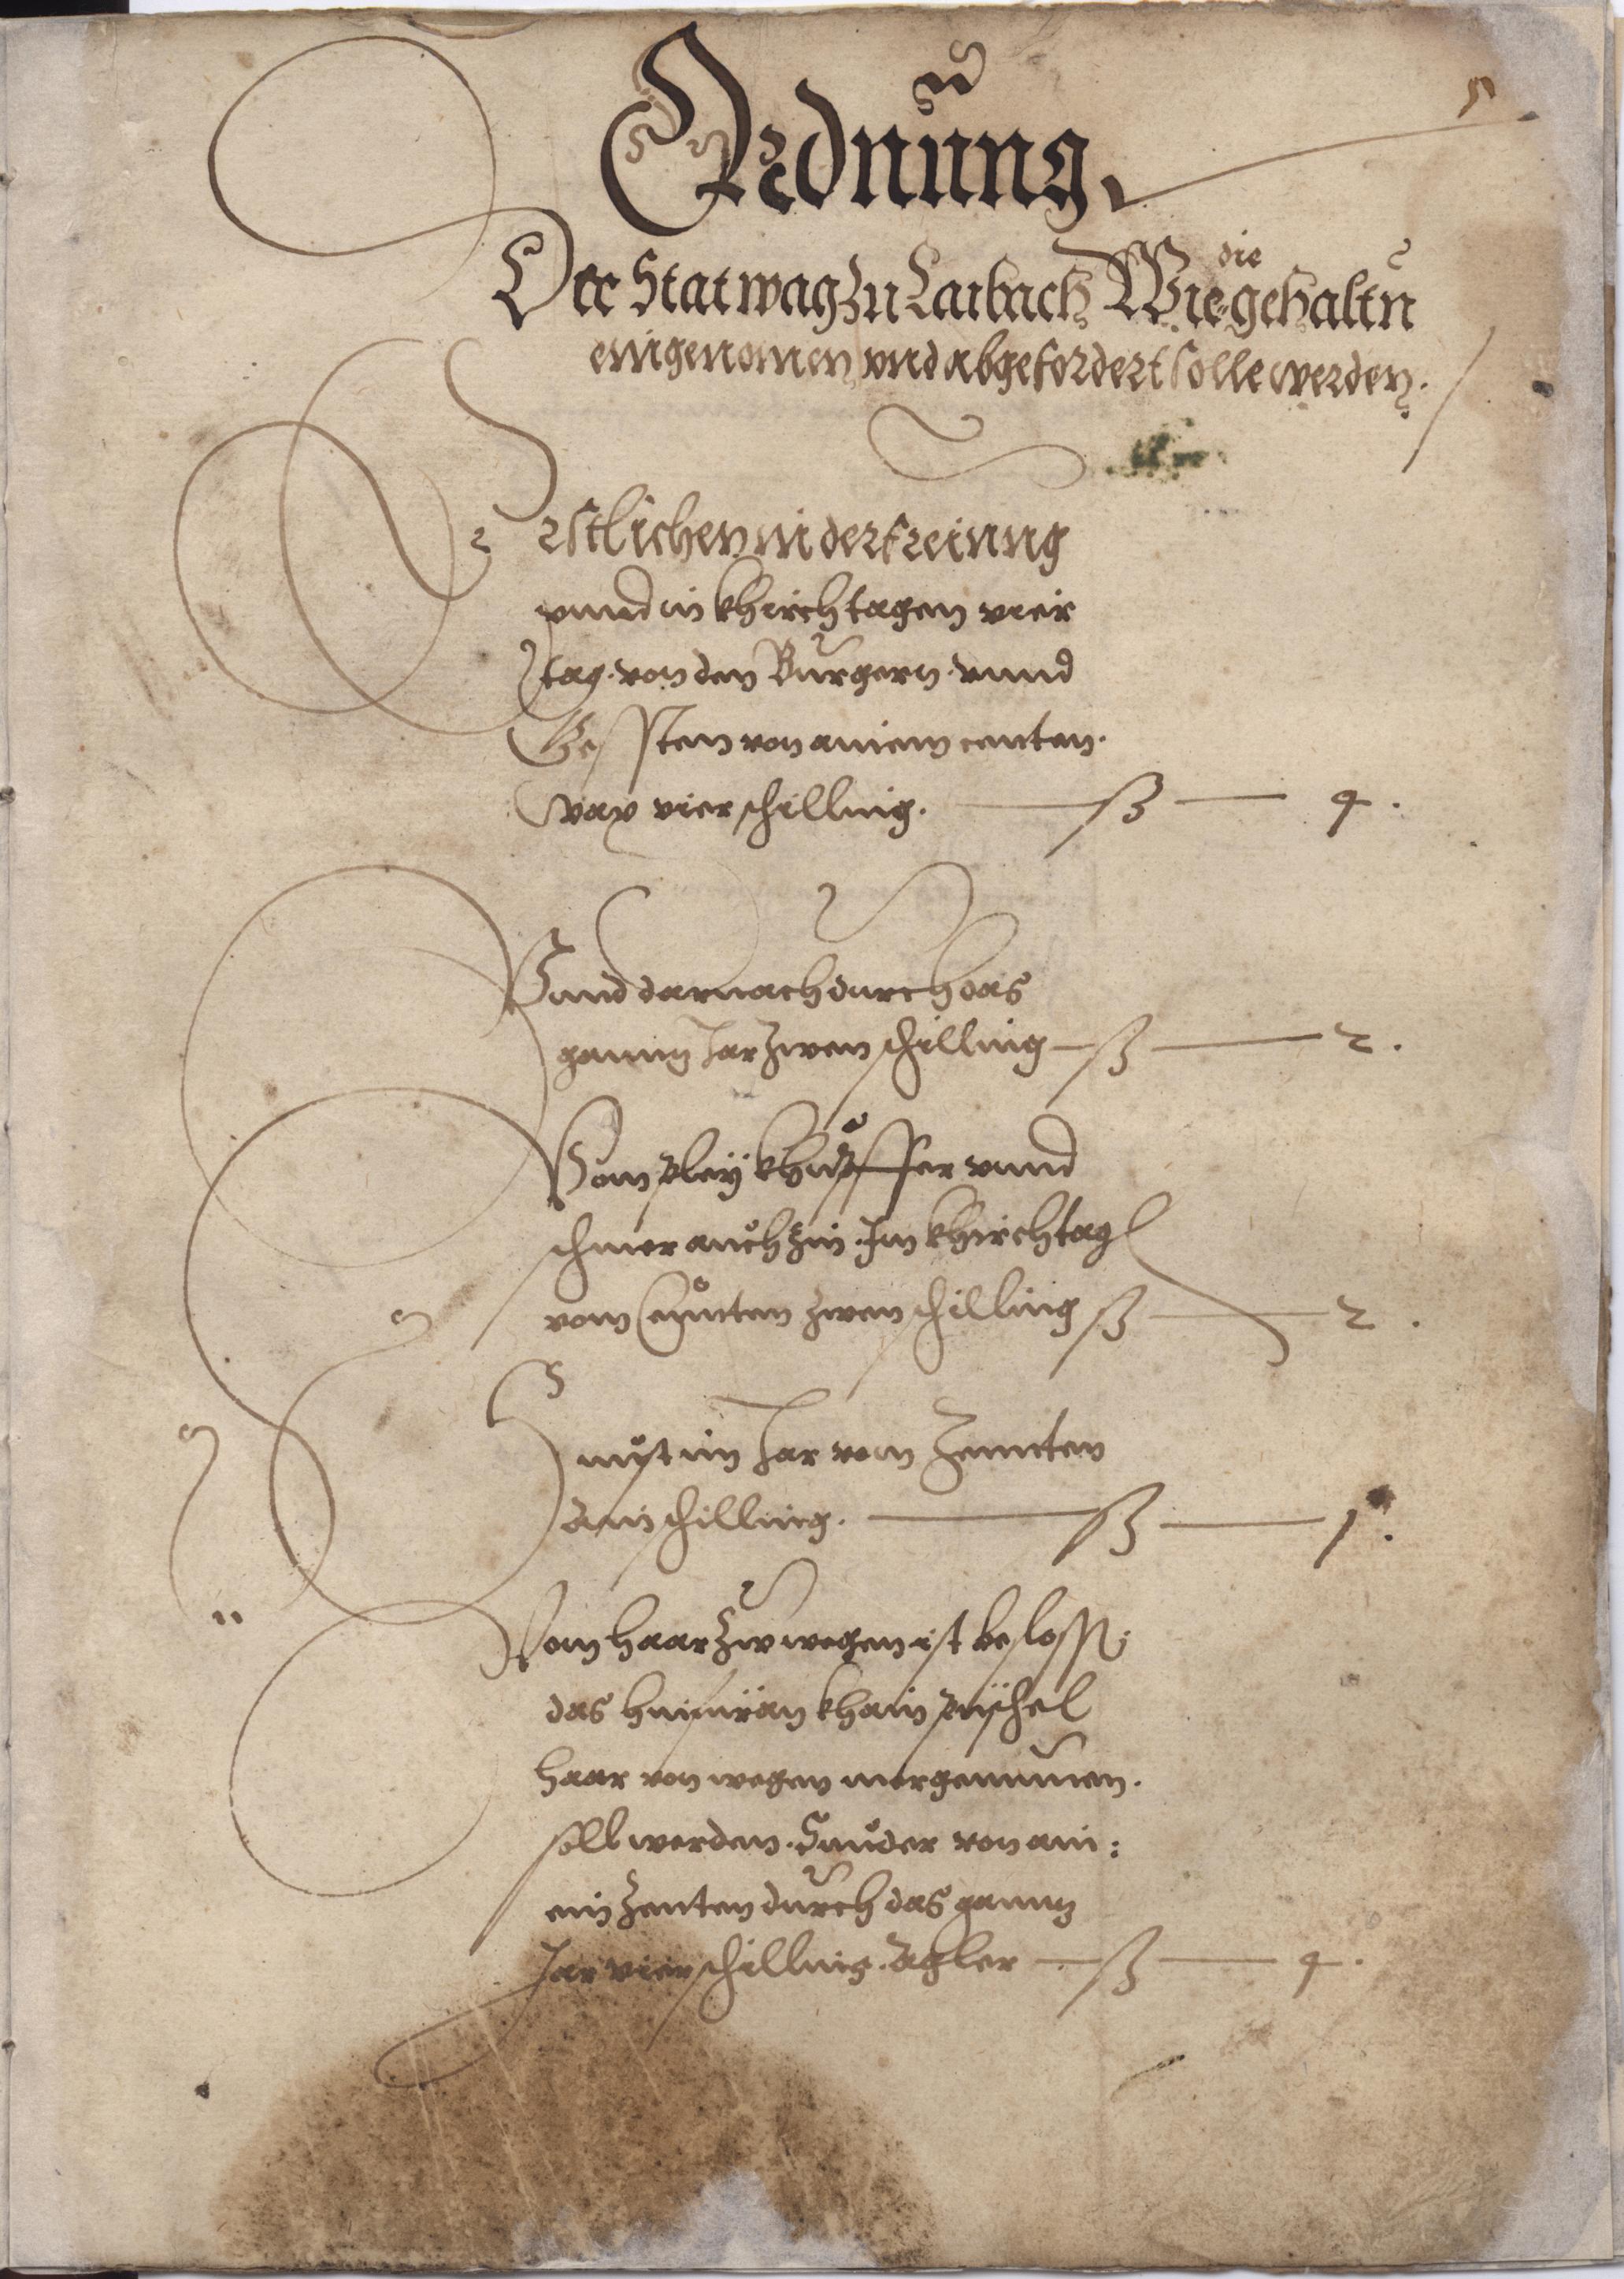 Ordnung
Der Statwag zu Laibach Wie die gehaltn
eingenomen vnd abgefordert solle werden.
Erstlichen in der freiung
vnnd in khirchtagen vier
tag. von den Burgern. vnnd
Gessten von ainem centen.
Wax vier schilling. ß 4.
Vnnd darnach durch das
gannz Jar zwen schilling ß 2.
Vom pley khupffer vnnd
schmer auch zin. Im khirchtag
vom Cenntten zwen schilling ß 2.
Sunst im Jar vom Zenntten
ain schilling. ß 1.
Vom haar zw wegen ist beslossn
das hinfüran khain püschel
haar von wegen mer genumen.
soll werden. Sunder von ain:
em Zenten durch das gannz
Jar vier schilling. Agler ß 4.